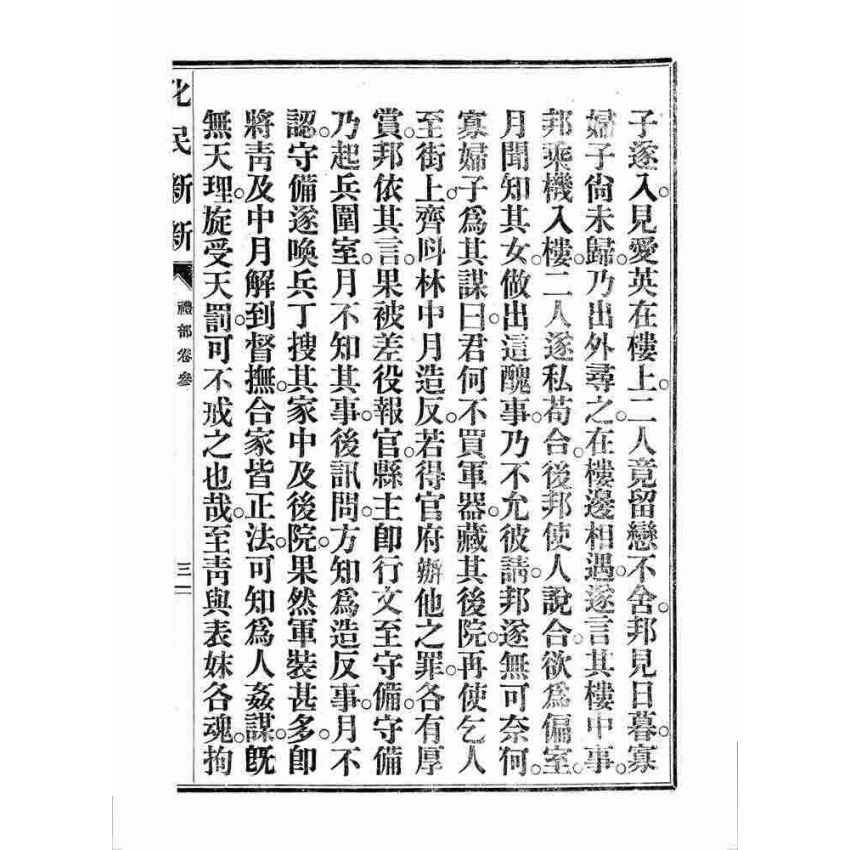 子遂入。見愛英在樓上。二人竟留戀不舍。邦見日暮。寡
婦子尙未歸。乃出外尋之。在樓邊相遇。遂言其樓中事。
邦乘機入樓。二人遂私苟合。後邦使人說合。欲爲偏室。
月聞知其女。做出這醜事。乃不允彼請。邦遂無可奈何。
寡婦子爲其謀曰。君何不買軍器。藏其後院。再使乞人
至街上。齊呌林中月造反。若得官府辦他之罪。各有厚
賞。邦依其言。果被差役報官。縣主卽行文至守備。守備
乃起兵圍室。月不知其事。後訊問。方知爲造反事。月不
認。守備遂喚兵丁搜其家中及後院。果然軍裝甚多。卽
將靑及中月解到督撫。合家皆正法。可知爲人姦謀。旣
無天理。旋受天罰。可不戒之也哉。至靑與表妹各魂。拘
化民新新
禮部卷參
三一